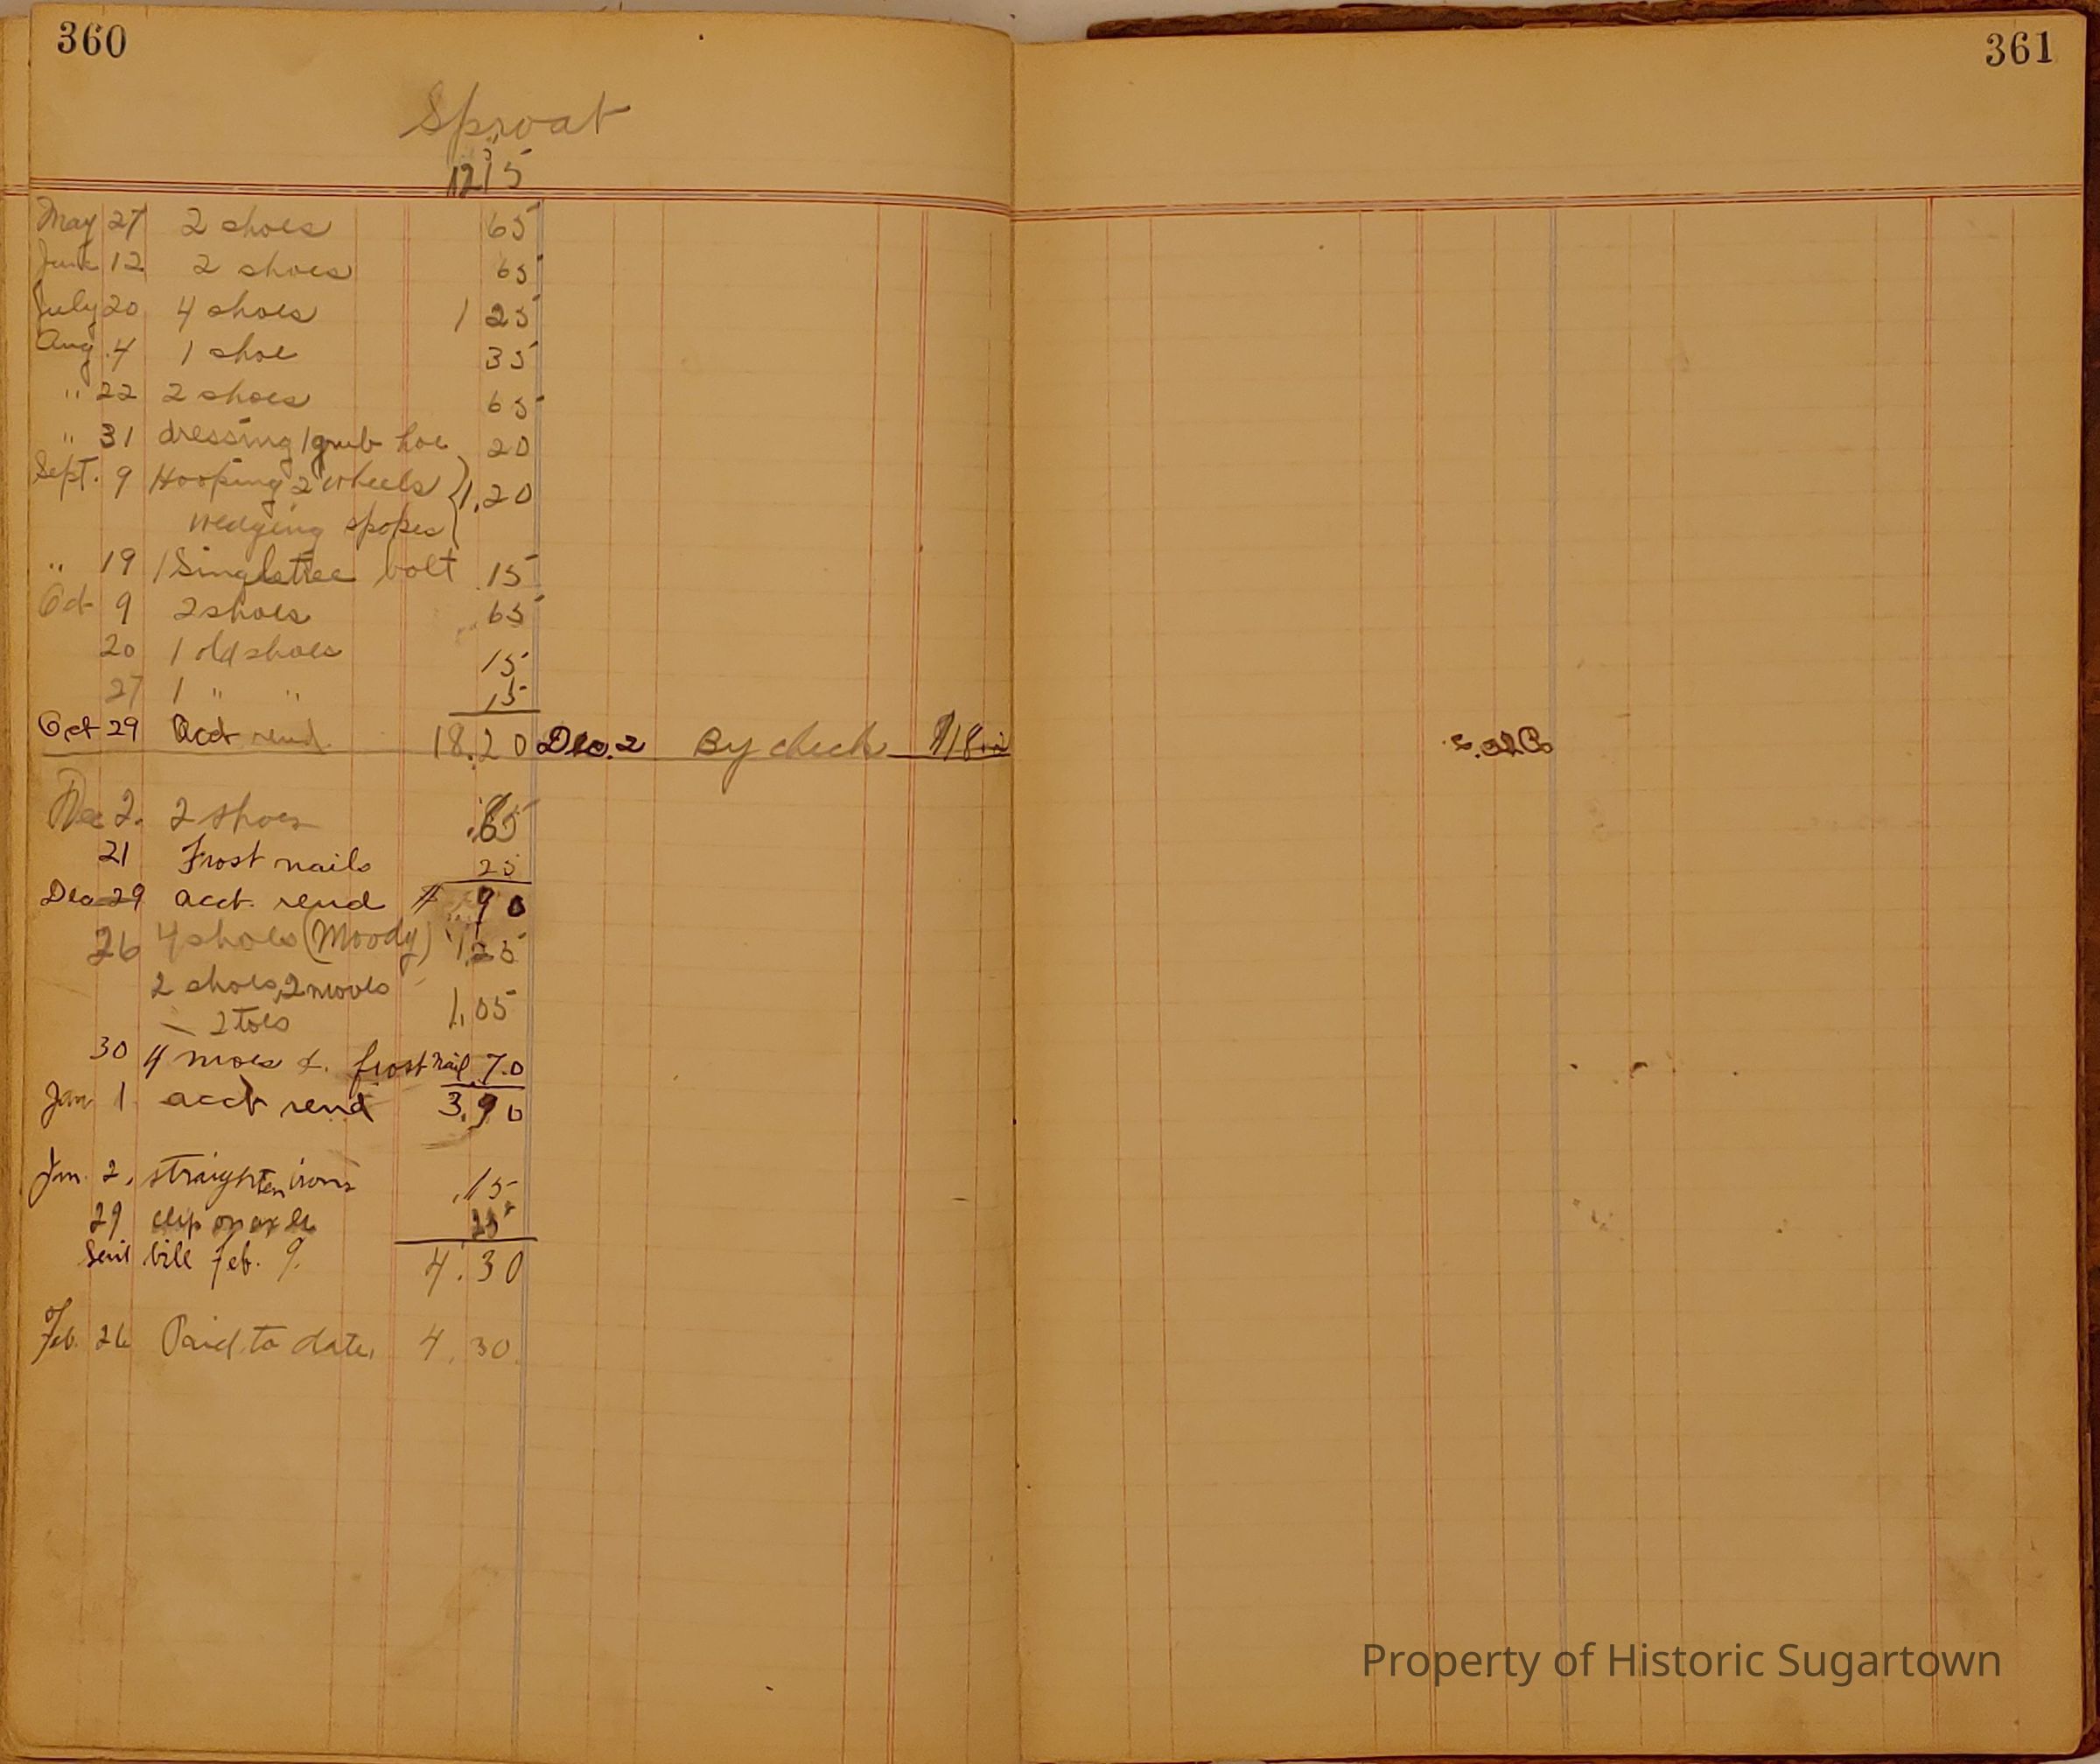 360
361
Sproat
12 15
May 27 2 shoes 65
June 12 2 shoes 65
July 20 4 shoes 1 25
Aug. 4 1 shoe 35
" 22 2 shoes 65
" 31 dressing 1 grub hoe 20
Sept. 9 Hooping 2 wheels } 1.20
wedging spopes
" 19 1 Singletree bolt 15
Oct 9 2 shoes 65
20 1 old shoes 15
27 1 " " 15
Oct 29 Acct rend 18.20 Dec. 2 By check
Dec 2. 2 shoes .65
21 Frost nails 25
Dec 29 acct. rend # 90
26 4 shoes (Moody) 1.25
2 shoes, 2 moves 1.05
— 2 toes
30 4 moes &. frost nail .70
Jan 1 acct rend 3.90
Jan. 2. straighten irons .15
29 clip on axle 25
Sent bill Feb. 9. 4.30
Feb. 26 Paid to date. 4.30.
Property of Historic Sugartown